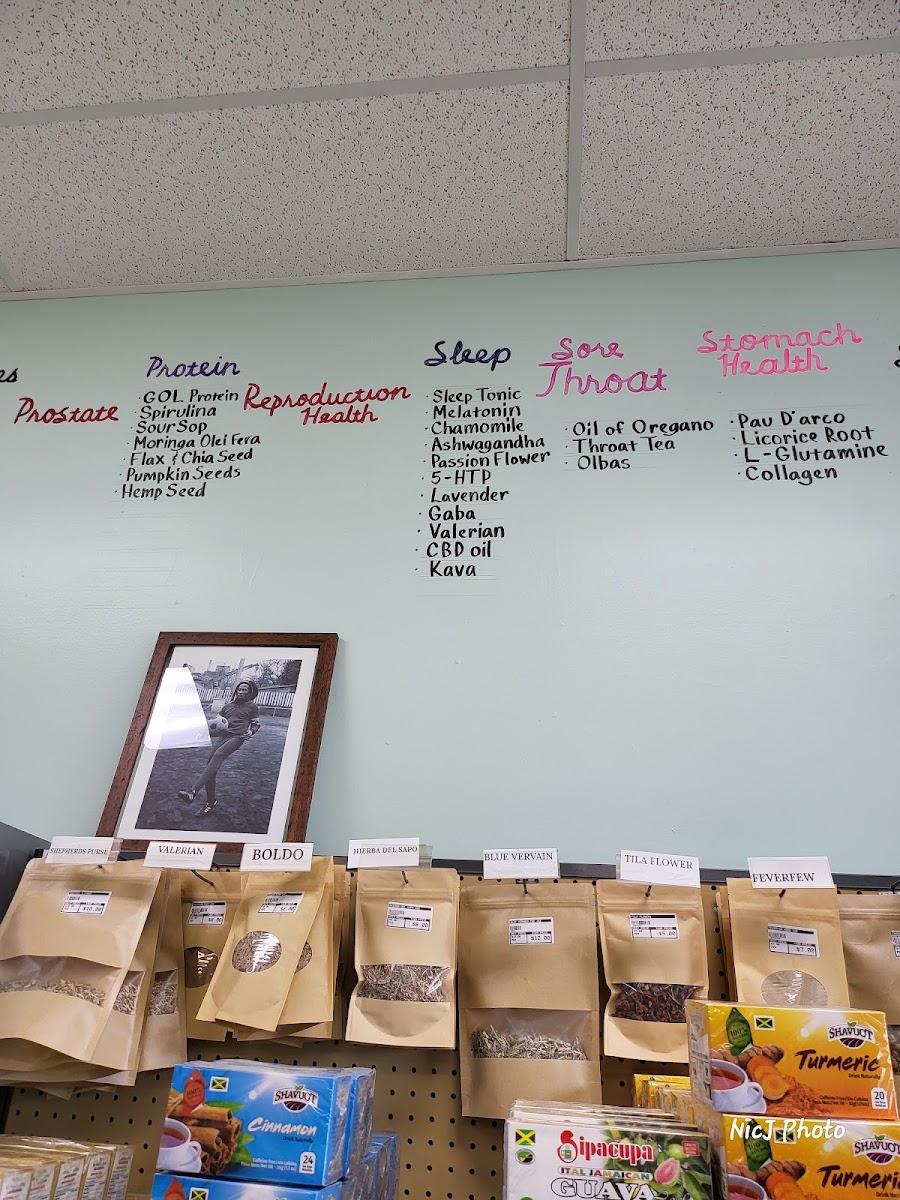 es
Prostate
Protein
· GOL Protein
· Spirulina
· Sour Sop
· Moringa Olei Fera
· Flax & Chia Seed
· Pumpkin Seeds
· Hemp Seed
Reproduction
Health
Sleep
· Sleep Tonic
· Melatonin
· Chamomile
· Ashwagandha
· Passion Flower
· 5-HTP
· Lavender
· Gaba
· Valerian
· CBD oil
· Kava
Sore
Throat
· Oil of Oregano
· Throat Tea
· Olbas
Stomach
Health
· Pau D'arco
· Licorice Root
· L-Glutamine
· Collagen
SHEPHERDS PURSE
VALERIAN
BOLDO
HIERBA DEL SAPO
BLUE VERVAIN
TILA FLOWER
FEVERFEW
$10.00
$6.00
$12.00
$5.00
$7.00
SHAVUOT
Cinnamon
Drink Naturally
24
Sipacupa
ITAL JAMAICAN
GUAVA
SHAVUOT
Turmeric
Drink Naturally
20
SHAVUOT
Turmeric
NicJ Photo